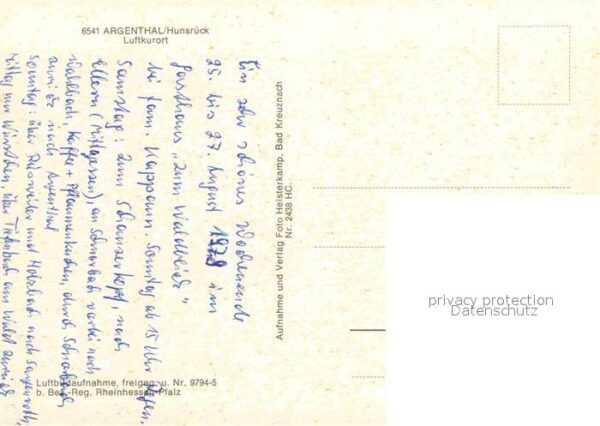 6541 ARGENTHAL/Hunsrück
Luftkurort
Ein sehr schönes Wochenende
25. bis 27. August 1978 im
Gasthaus „Zum Waldbeid"
bei Fam. Kappann. Samstag ab 15 Uhr
Samstag: Zum Schanzerkopf, nach
Ellern (Mittagessen), an Schnorbach vorbei nach
Wahlbach, Kaffee + Pflaumenkuchen, durch Schnorbach,
zurück nach Argenthal
Sonntag: über Riesweiler und Holzbach nach
Mittag nur Würstchen, über Tiefenbach am Wald zurück
Aufnahme und Verlag Foto Heisterkamp, Bad Kreuznach
Nr. 2438 HC.
Luftbildaufnahme, freigeg. u. Nr. 9794-5
b. Bez.-Reg. Rheinhessen-Pfalz
privacy protection
Datenschutz